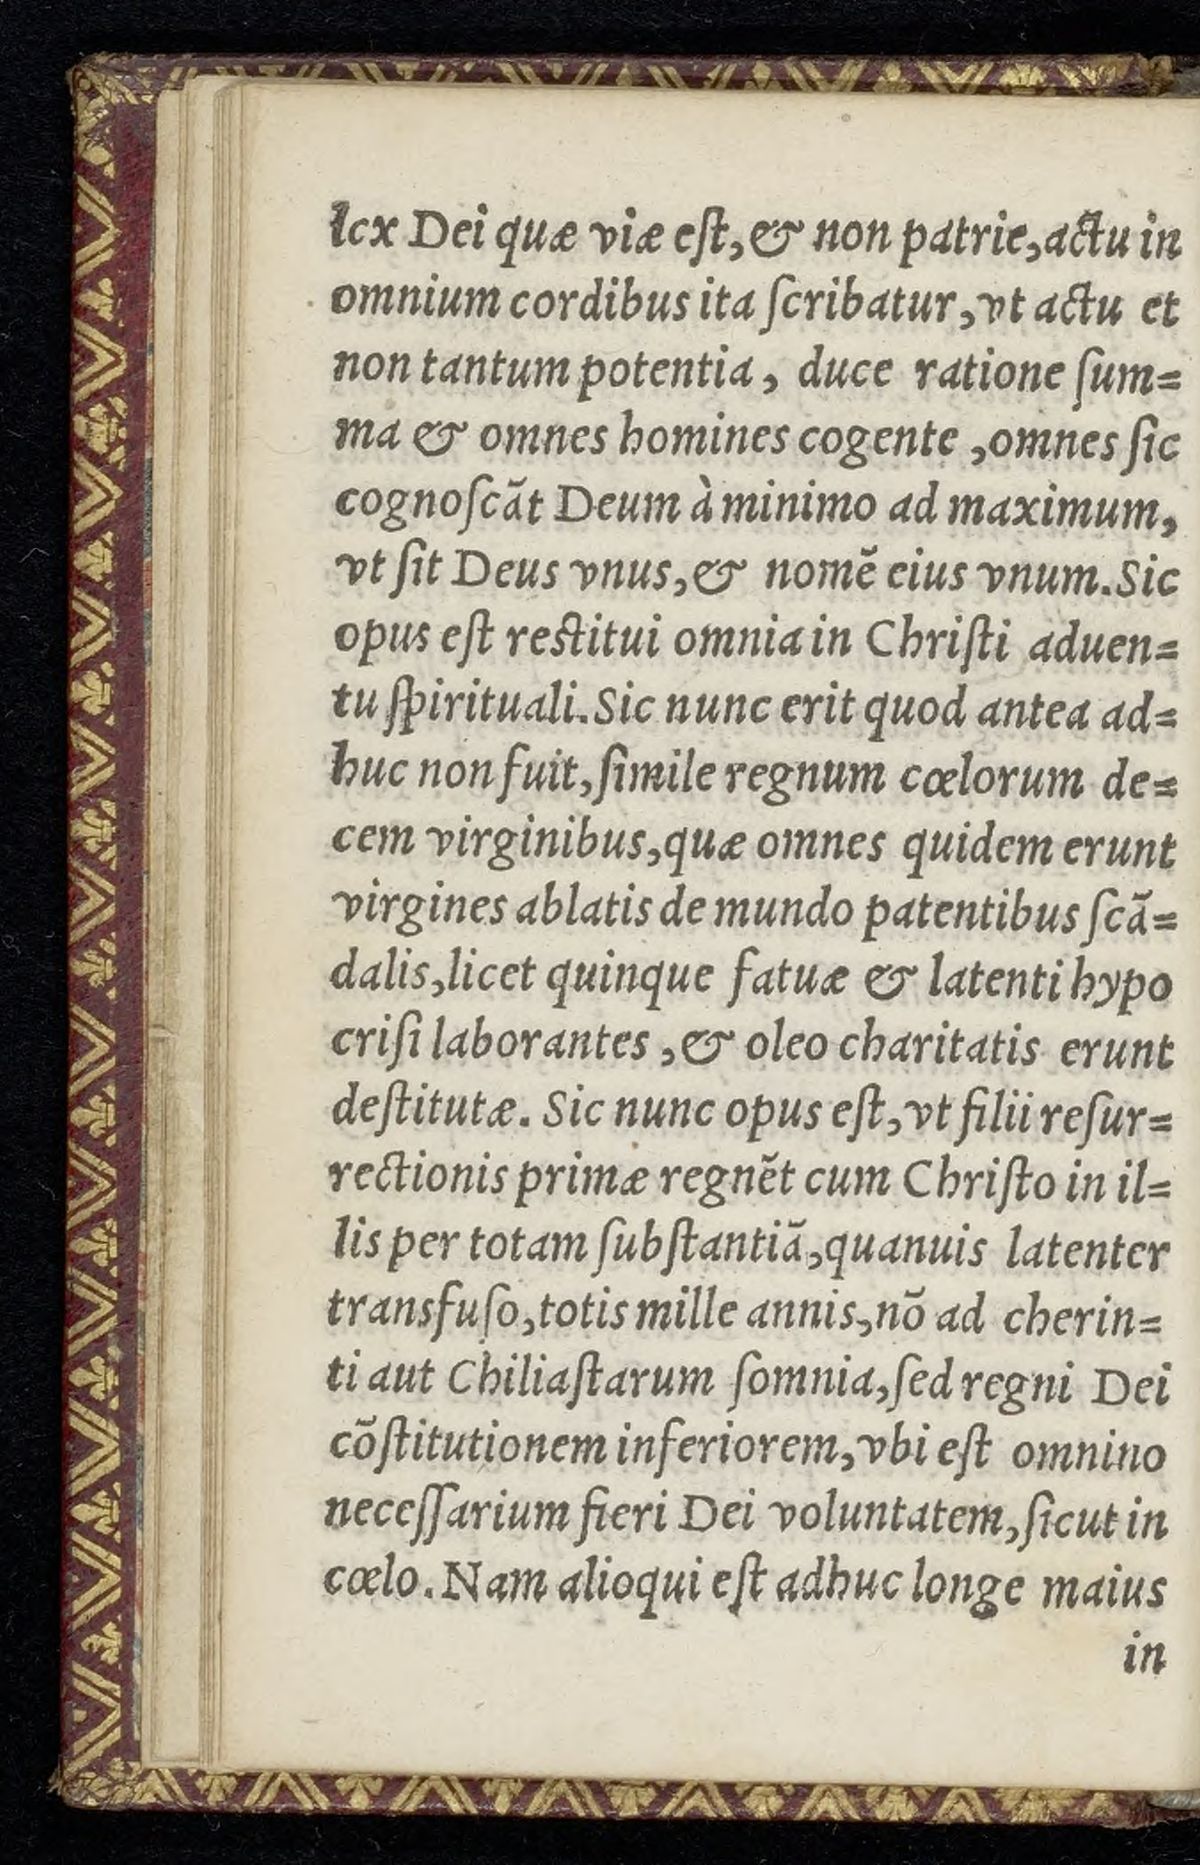 lex Dei quæ viæ eſt, & non patrie, actu in
omnium cordibus ita ſcribatur, vt actu et
non tantum potentia, duce ratione ſum=
ma & omnes homines cogente, omnes ſic
cognoſcãt Deum à minimo ad maximum,
vt ſit Deus vnus, & nomẽ eius vnum. Sic
opus eſt reſtitui omnia in Chriſti aduen=
tu ſpirituali. Sic nunc erit quod antea ad=
huc non fuit, ſimile regnum cœlorum de=
cem virginibus, quæ omnes quidem erunt
virgines ablatis de mundo patentibus ſcã=
dalis, licet quinque fatuæ & latenti hypo
criſi laborantes, & oleo charitatis erunt
deſtitutæ. Sic nunc opus eſt, vt filii reſur=
rectionis primæ regnẽt cum Chriſto in il=
lis per totam ſubſtantiã, quanuis latenter
transfuſo, totis mille annis, nõ ad cherin=
ti aut Chiliaſtarum ſomnia, ſed regni Dei
cõſtitutionem inferiorem, vbi eſt omnino
neceſſarium fieri Dei voluntatem, ſicut in
cœlo. Nam alioqui eſt adhuc longe maius
in